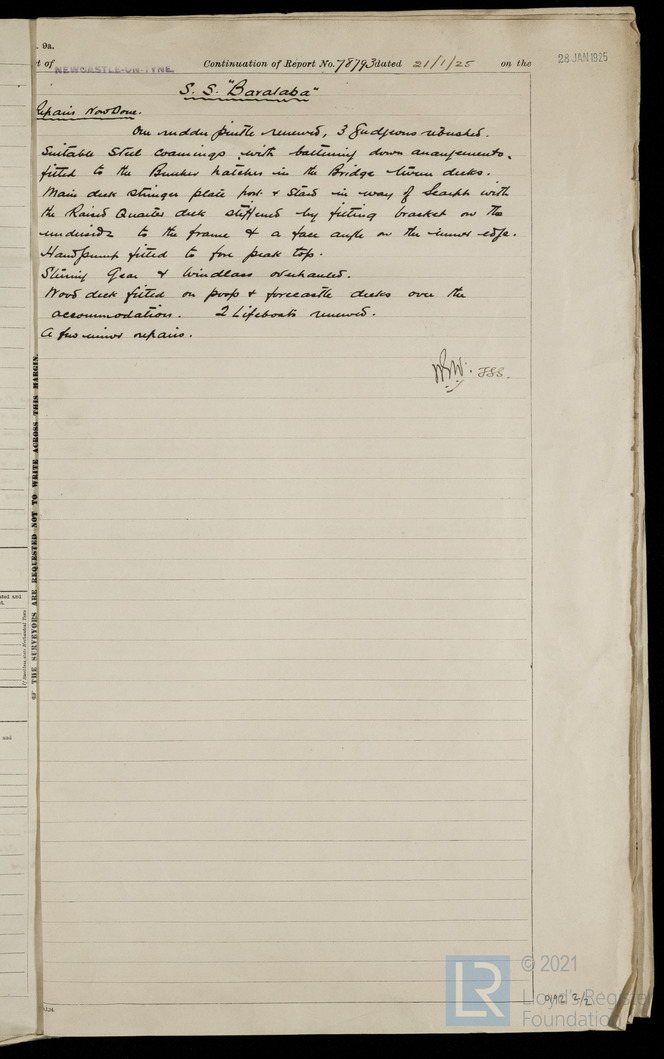 . 9a.
t of NEWCASTLE-ON-TYNE. Continuation of Report No. 78793 dated 21/1/25 on the
28 JAN 1925
S. S. "Baralaba"
Repairs Now Done.
One rudder pintle renewed, 3 Gudgeons rebushed.
Suitable Steel coamings with battening down arrangements.
fitted to the Bunker hatches in the Bridge tween decks.
Main deck stringer plate port & Starb in way of Scarph with
the Raised Quarter deck stiffened by fitting bracket on the
underside to the frame & a face angle on the inner edge.
Hand pump fitted to fore peak top.
Steering Gear & Windlass overhauled.
Wood deck fitted on poop & forecastle decks over the
accommodation. 2 Lifeboats renewed.
A few minor repairs.
JSS.
THE SURVEYORS ARE REQUESTED NOT TO WRITE ACROSS THIS MARGIN.
LR
© 2021
Lloyd's Register
Foundation